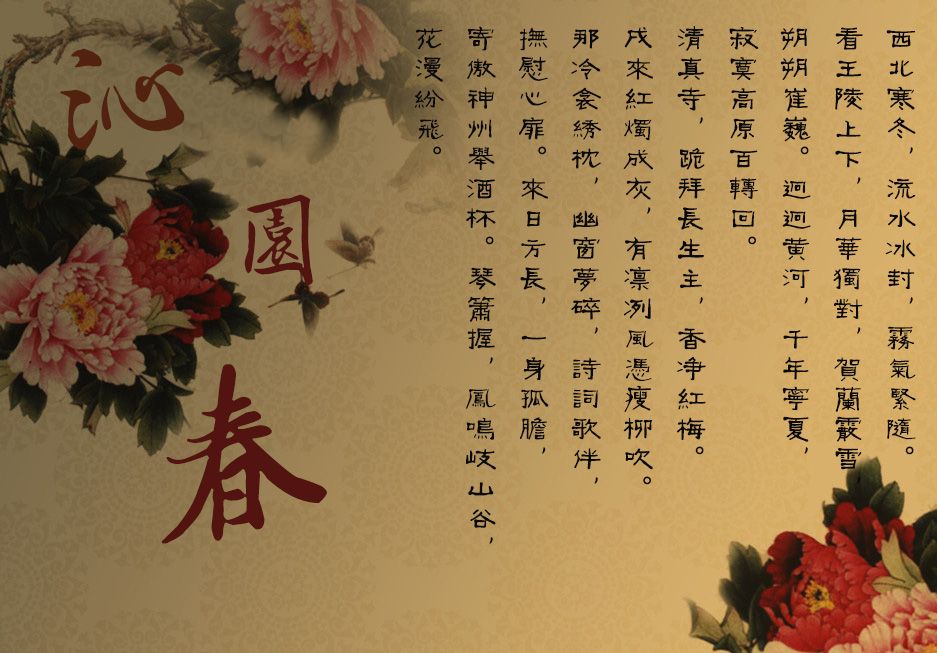 沁園春
西北寒冬，流水冰封，霧氣緊隨。
看王陵上下，月華獨對，賀蘭霰雪，
朔朔崔巍。迴迴黄河，千年寧夏，
寂寞高原百轉回。
清真寺，跪拜長生主，香净紅梅。
戌來紅燭成灰，有凛冽風憑瘦柳吹。
那冷衾綉枕，幽窗夢碎，詩詞歌伴，
撫慰心扉。來日方長，一身孤膽，
寄傲神州舉酒杯。琴簫握，鳳鳴岐山谷，
花漫紛飛。